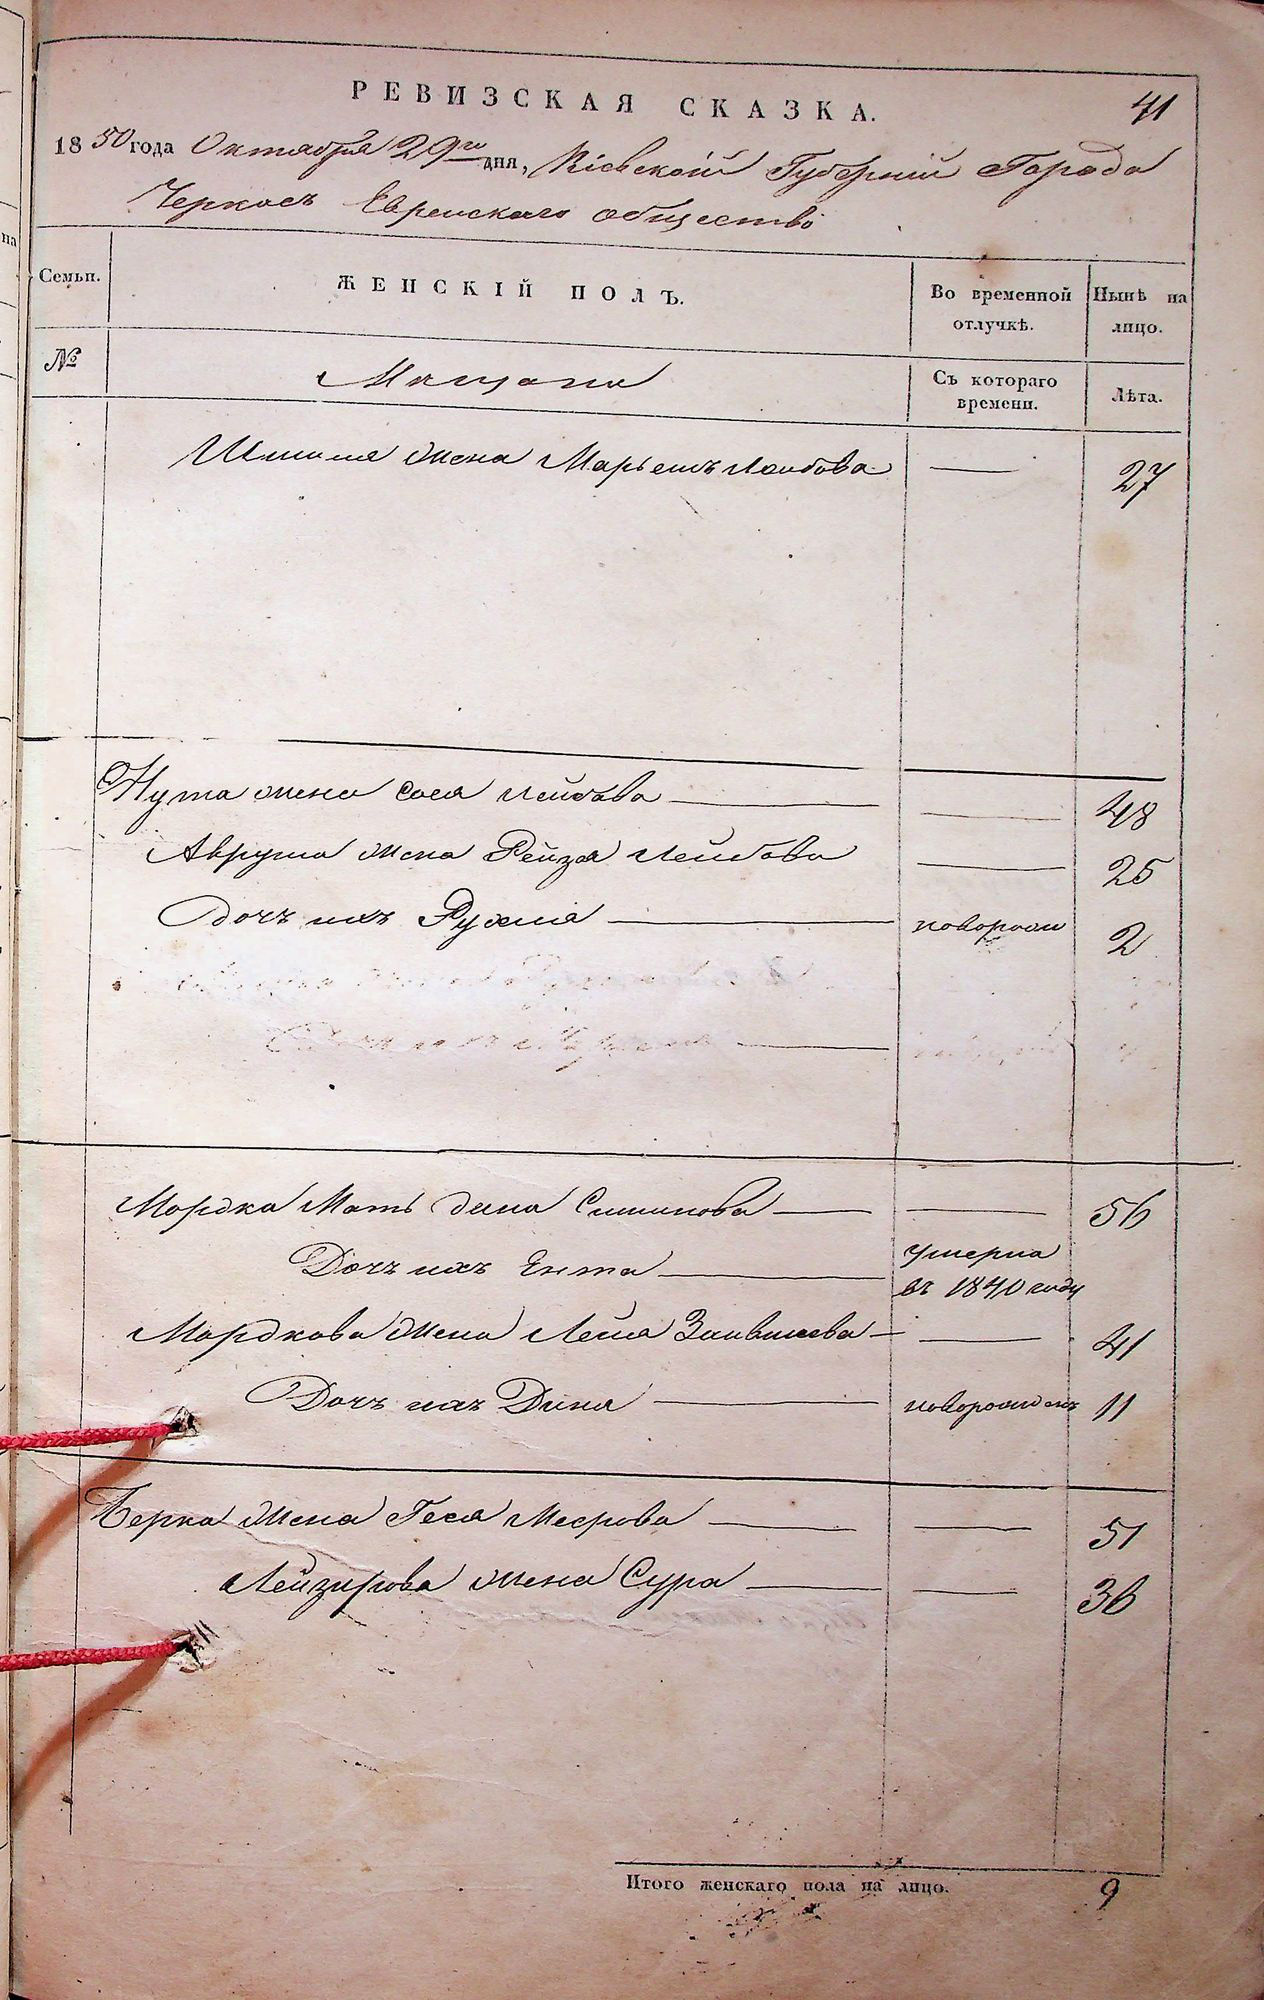 РЕВИЗСКАЯ СКАЗКА.
41
1850 года Октября 29го дня, Кіевской Губерніи Города
Черкасъ Еврейскаго общества
Семьи.
ЖЕНСКІЙ ПОЛЪ.
Во временной отлучкѣ.
Нынѣ на лицо.
№
Мещане
Съ котораго времени.
Лѣта.
жена Марьемъ Лейбова — 27
Нута жена Сося Лейбова — — 48
Аврума жена Рейза Лейбова — 25
Дочь ихъ Рухля — новорож 2
Мордка Мать Дина Симинова — — 56
Дочь ихъ Ента — умерла
въ 1840 году
Мордкова жена Лея — — 41
Дочь ихъ Дина — новорожденъ 11
Берка жена Геся Меерова — — 51
Лейзирова жена Сура — — 36
Итого женскаго пола на лицо. 9